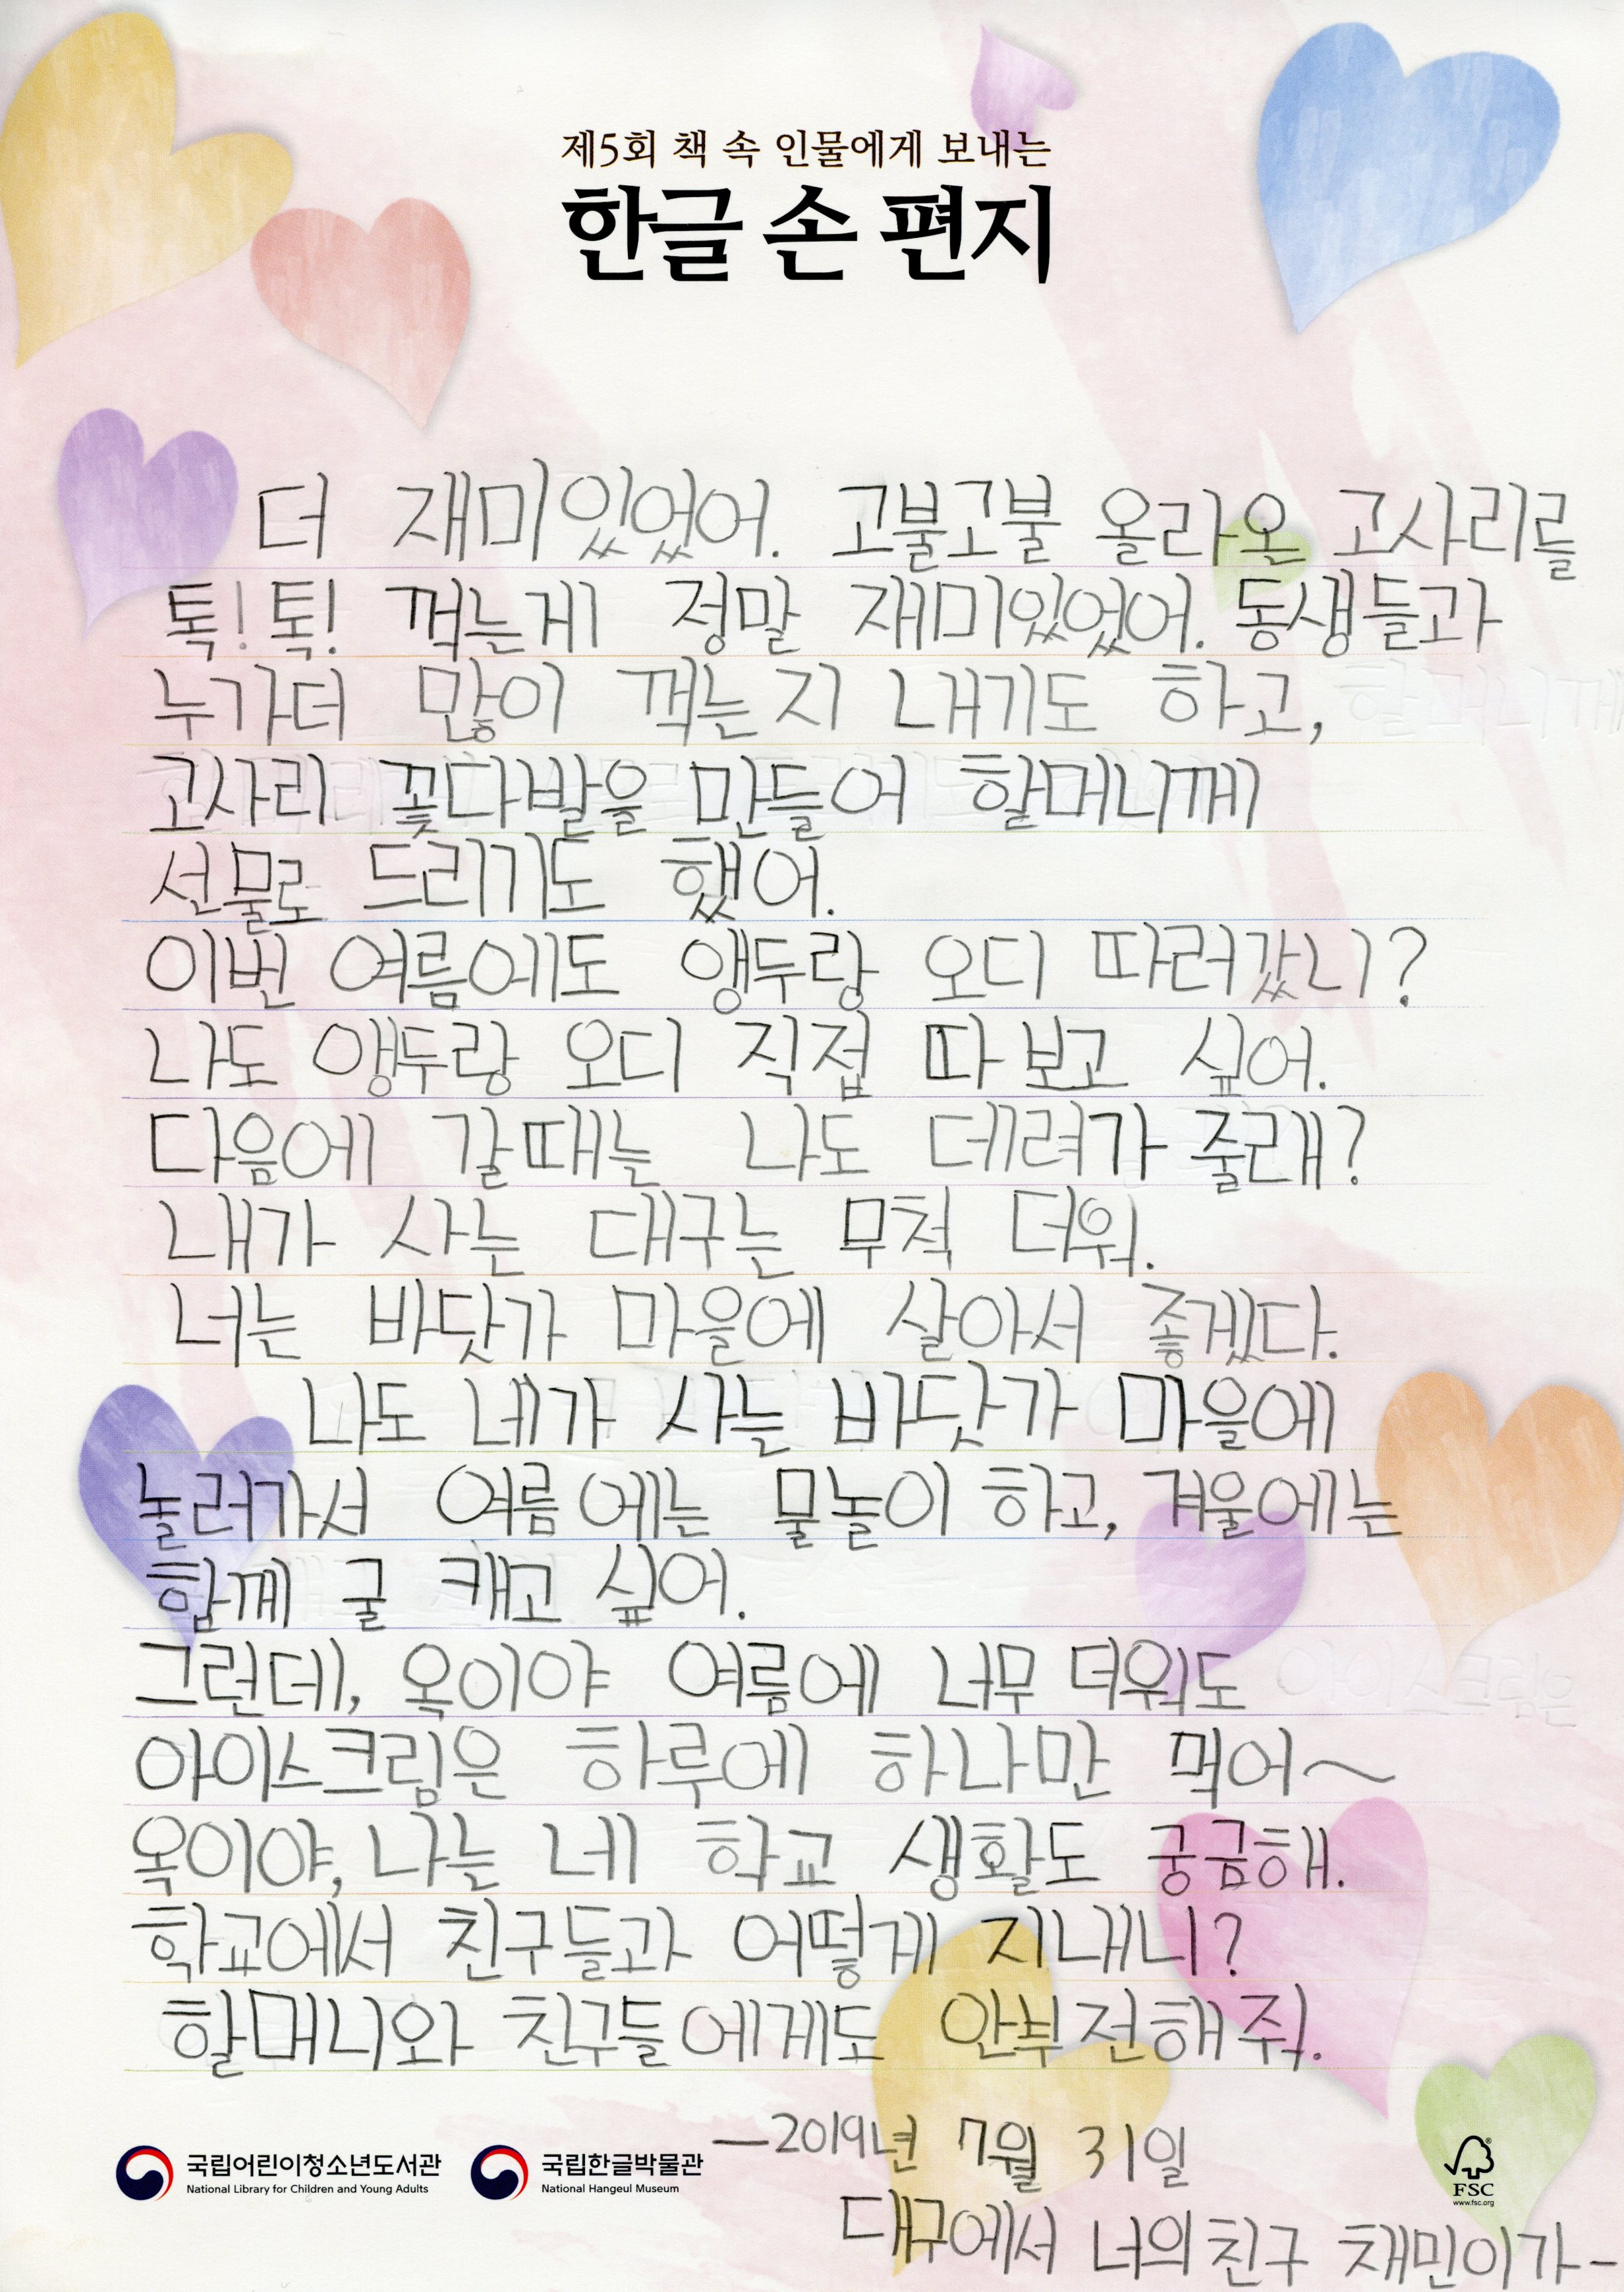 제5회 책 속 인물에게 보내는
한글 손 편지
더 재미있었어. 고불고불 올라온 고사리를
톡! 톡! 꺽는게 정말 재미있었어. 동생들과
누가더 많이 꺽는지 내기도 하고,
고사리 꽃다발을 만들어 할머니께
선물로 드리기도 했어.
이번 여름에도 앵두랑 오디 따러갔니?
나도 앵두랑 오디 직접 따 보고 싶어.
다음에 갈때는 나도 데려가 줄래?
내가 사는 대구는 무척 더워.
너는 바닷가 마을에 살아서 좋겠다.
나도 네가 사는 바닷가 마을에
놀러가서 여름에는 물놀이 하고, 겨울에는
함께 굴 캐고 싶어.
그런데, 옥이야 여름에 너무 더워도
아이스크림은 하루에 하나만 먹어~
옥이야, 나는 네 학교 생활도 궁금해.
학교에서 친구들과 어떻게 지내니?
할머니와 친구들에게도 안부 전해 줘.
—2019년 7월 31일
대구에서 너의 친구 채민이가-
국립어린이청소년도서관
National Library for Children and Young Adults
국립한글박물관
National Hangeul Museum
FSC
www.fsc.org